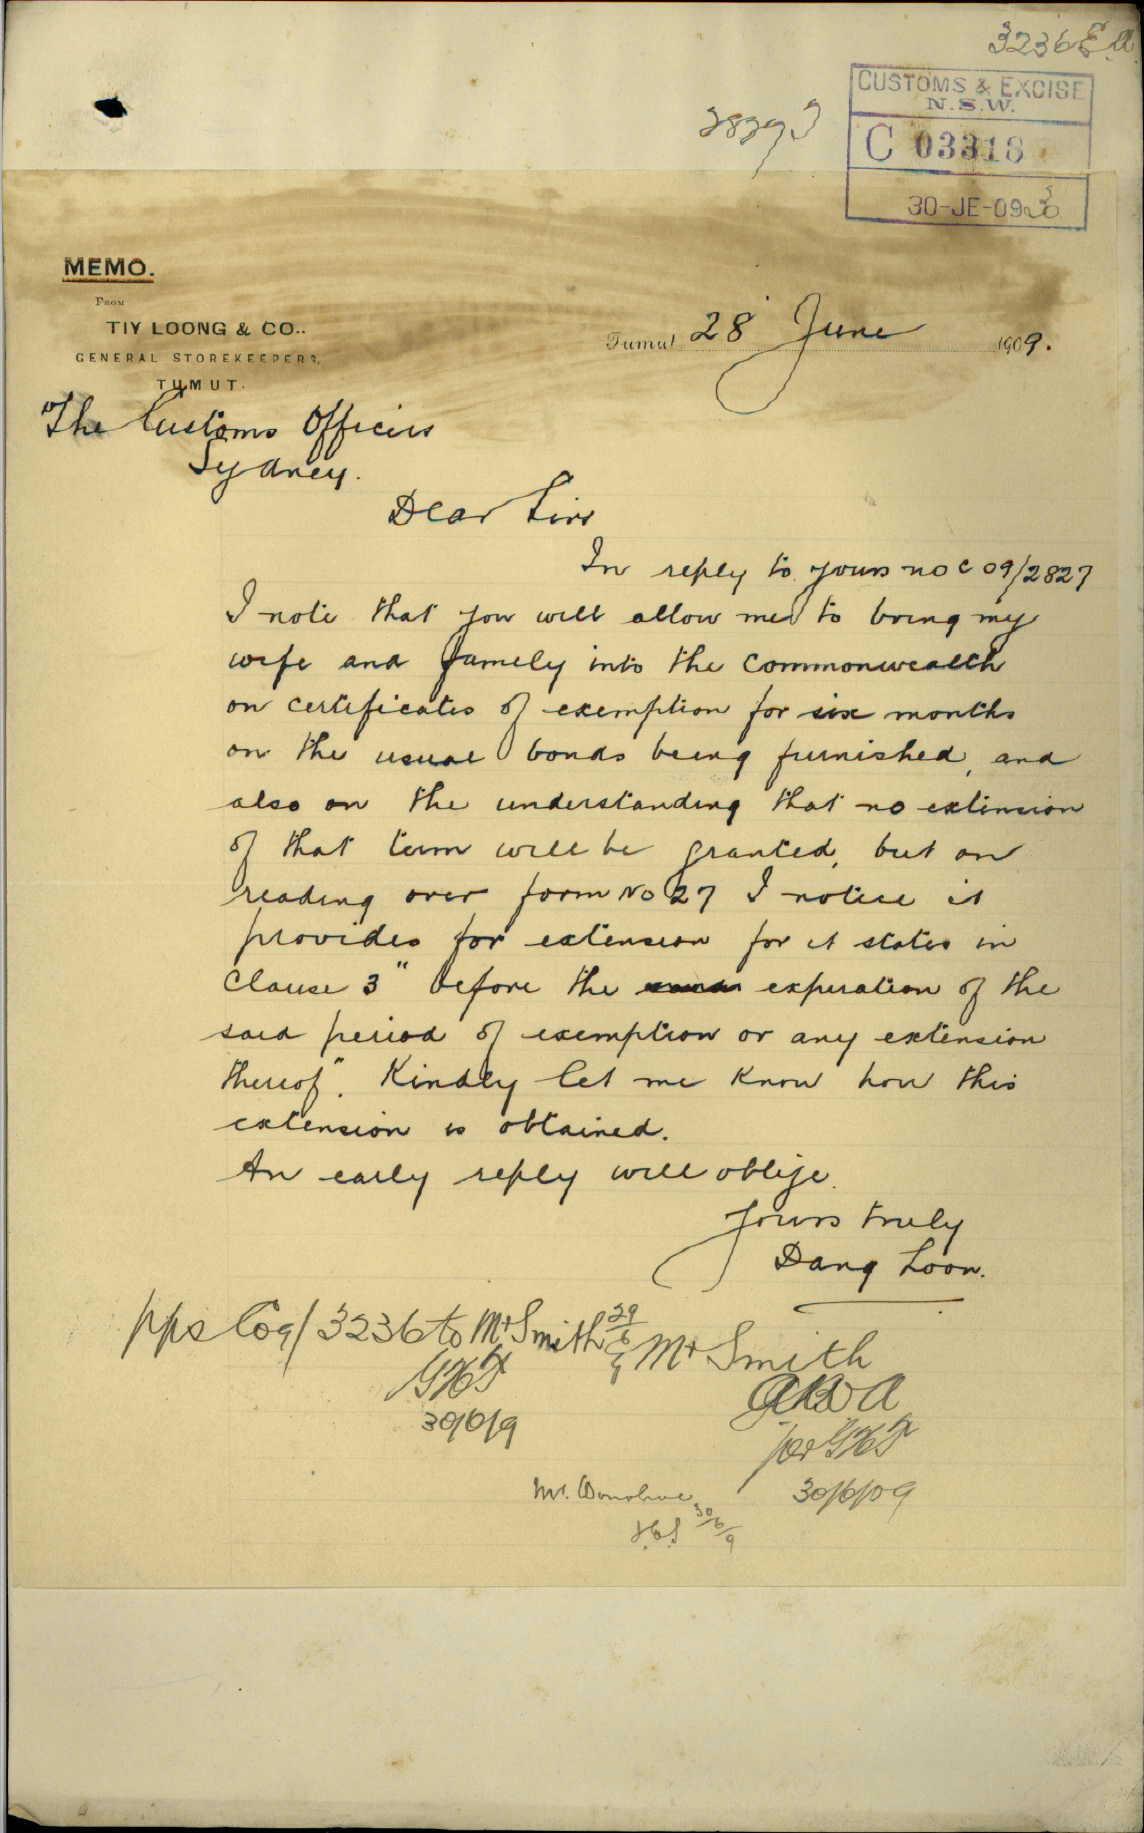 3236 E.A.
CUSTOMS & EXCISE
N.S.W.
C 03318
30-JE-09
MEMO.
From
TIY LOONG & CO..
GENERAL STOREKEEPERS,
TUMUT.
Tumut 28 June 1909.
The Customs Officers
Sydney.
Dear Sirs
In reply to yours no C 09/2827
I note that you will allow me to bring my
wife and family into the Commonwealth
on certificates of exemption for six months
on the usual bonds being furnished, and
also on the understanding that no extension
of that term will be granted, but on
reading over form No 27 I notice it
provides for extension for it states in
Clause 3 "before the expiration of the
said period of exemption or any extension
thereof". Kindly let me know how this
extension is obtained.
An early reply will oblige.
Yours truly
Dang Loon.
pps C09/3236 to Mr Smith 29/6/9
GKF
30/6/9
Mr Smith
for GKF
30/6/09
Mr. Donohue
30/6/9